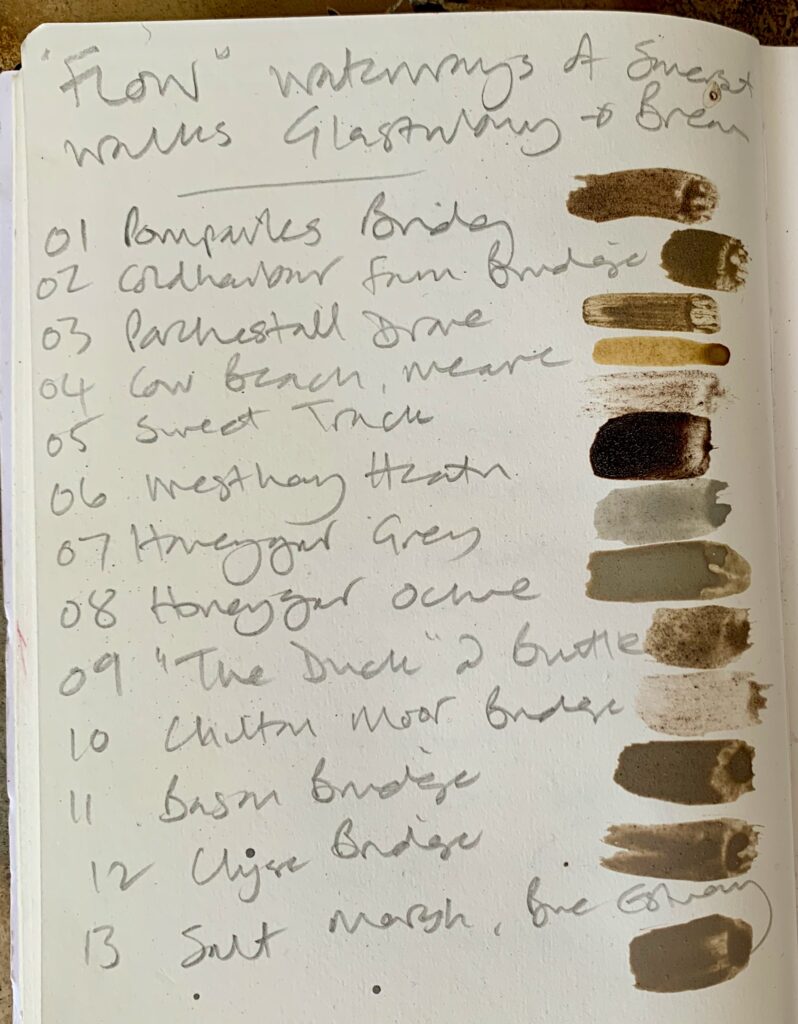 "Flow" waterways of Somerset
walks Glastonbury to Brean
01 Pomparles Bridge
02 Coldharbour Farm Bridge
03 Parchestall Drove
04 Cow Beach, Meare
05 Sweet Track
06 Westhay Heath
07 Honeygar Grey
08 Honeygar Ochre
09 "The Duck" Burtle
10 Chilton Moor Bridge
11 Bason Bridge
12 Clyse Bridge
13 Salt Marsh, Brue Estuary